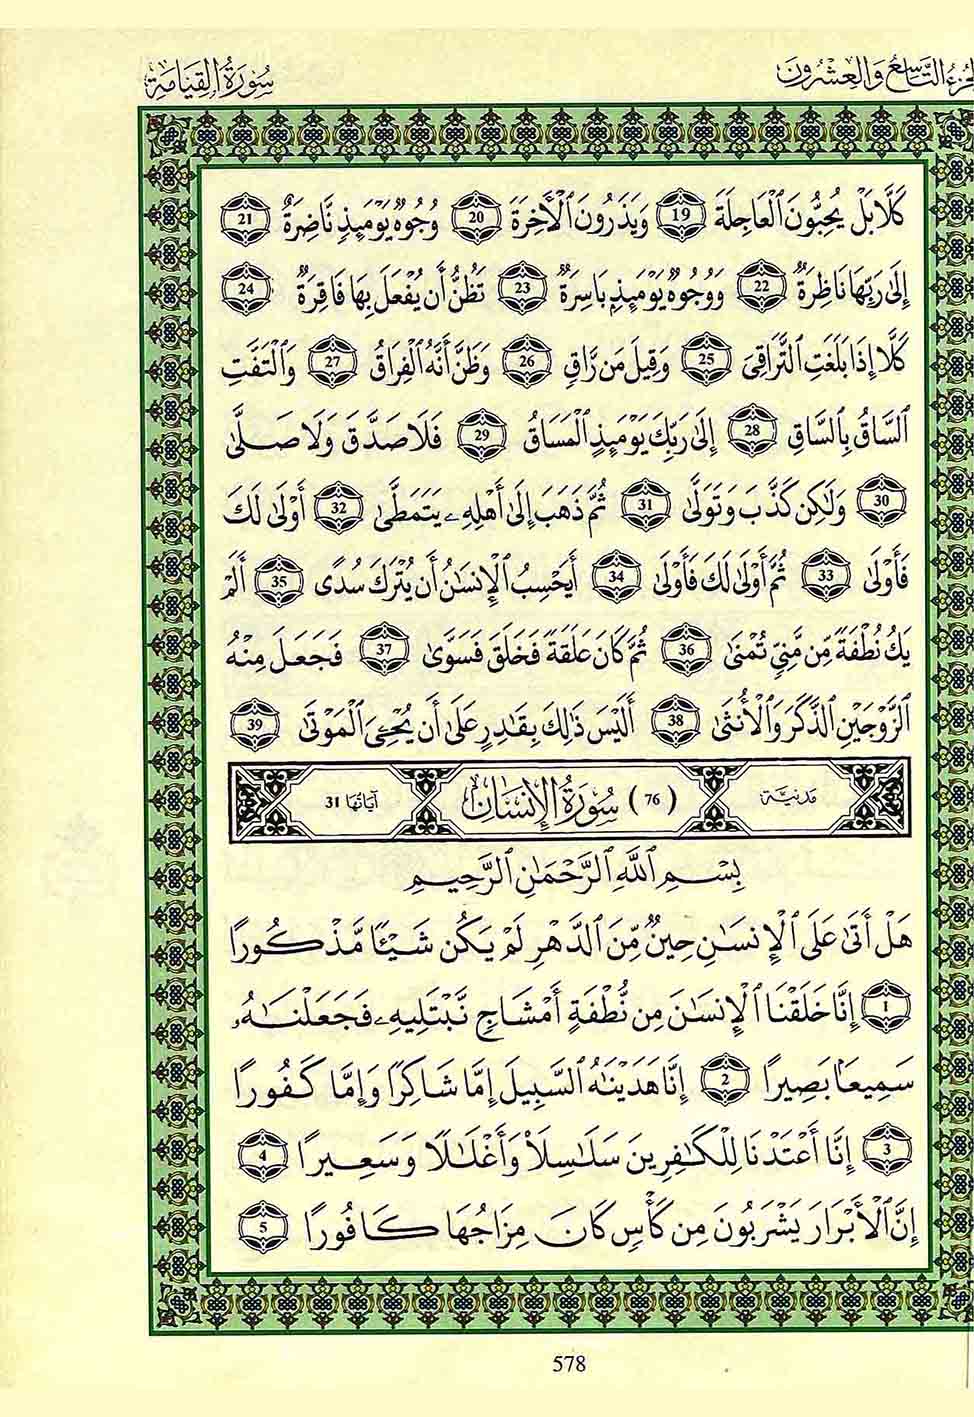 الجزء التاسع والعشرون
سورة القيامة
كَلَّا بَلْ يُحِبُّونَ ٱلْعَاجِلَةَ 19 وَيَذَرُونَ ٱلْأَخِرَةَ 20 وُجُوهٌ يَوْمَئِذٍ نَّاضِرَةٌ 21
إِلَىٰ رَبِّهَا نَاظِرَةٌ 22 وَوُجُوهٌ يَوْمَئِذٍ بَاسِرَةٌ 23 تَظُنُّ أَن يُفْعَلَ بِهَا فَاقِرَةٌ 24
كَلَّا إِذَا بَلَغَتِ ٱلتَّرَاقِيَ 25 وَقِيلَ مَن رَّاقٍ 26 وَظَنَّ أَنَّهُ ٱلْفِرَاقُ 27 وَٱلْتَفَّتِ
ٱلسَّاقُ بِٱلسَّاقِ 28 إِلَىٰ رَبِّكَ يَوْمَئِذٍ ٱلْمَسَاقُ 29 فَلَا صَدَّقَ وَلَا صَلَّىٰ
30 وَلَٰكِن كَذَّبَ وَتَوَلَّىٰ 31 ثُمَّ ذَهَبَ إِلَىٰ أَهْلِهِۦ يَتَمَطَّىٰ 32 أَوْلَىٰ لَكَ
فَأَوْلَىٰ 33 ثُمَّ أَوْلَىٰ لَكَ فَأَوْلَىٰ 34 أَيَحْسِبُ ٱلْإِنسَٰنُ أَن يُتْرَكَ سُدًى 35 أَلَمْ
يَكُ نُطْفَةً مِّن مَّنِيٍّ تُمْنَىٰ 36 ثُمَّ كَانَ عَلَقَةً فَخَلَقَ فَسَوَّىٰ 37 فَجَعَلَ مِنْهُ
ٱلزَّوْجَيْنِ ٱلذَّكَرَ وَٱلْأُنثَىٰ 38 أَلَيْسَ ذَٰلِكَ بِقَٰدِرٍ عَلَىٰ أَن يُحْـِۧيَ ٱلْمَوْتَىٰ 39
مدنية (76) سورة الإنسان آياتها 31
بِسْمِ ٱللَّهِ ٱلرَّحْمَٰنِ ٱلرَّحِيمِ
هَلْ أَتَىٰ عَلَى ٱلْإِنسَٰنِ حِينٌ مِّنَ ٱلدَّهْرِ لَمْ يَكُن شَيْـًٔا مَّذْكُورًا
1 إِنَّا خَلَقْنَا ٱلْإِنسَٰنَ مِن نُّطْفَةٍ أَمْشَاجٍ نَّبْتَلِيهِ فَجَعَلْنَٰهُ
سَمِيعًا بَصِيرًا 2 إِنَّا هَدَيْنَٰهُ ٱلسَّبِيلَ إِمَّا شَاكِرًا وَإِمَّا كَفُورًا
3 إِنَّا أَعْتَدْنَا لِلْكَٰفِرِينَ سَلَٰسِلَا۟ وَأَغْلَٰلًا وَسَعِيرًا 4
إِنَّ ٱلْأَبْرَارَ يَشْرَبُونَ مِن كَأْسٍ كَانَ مِزَاجُهَا كَافُورًا 5
578